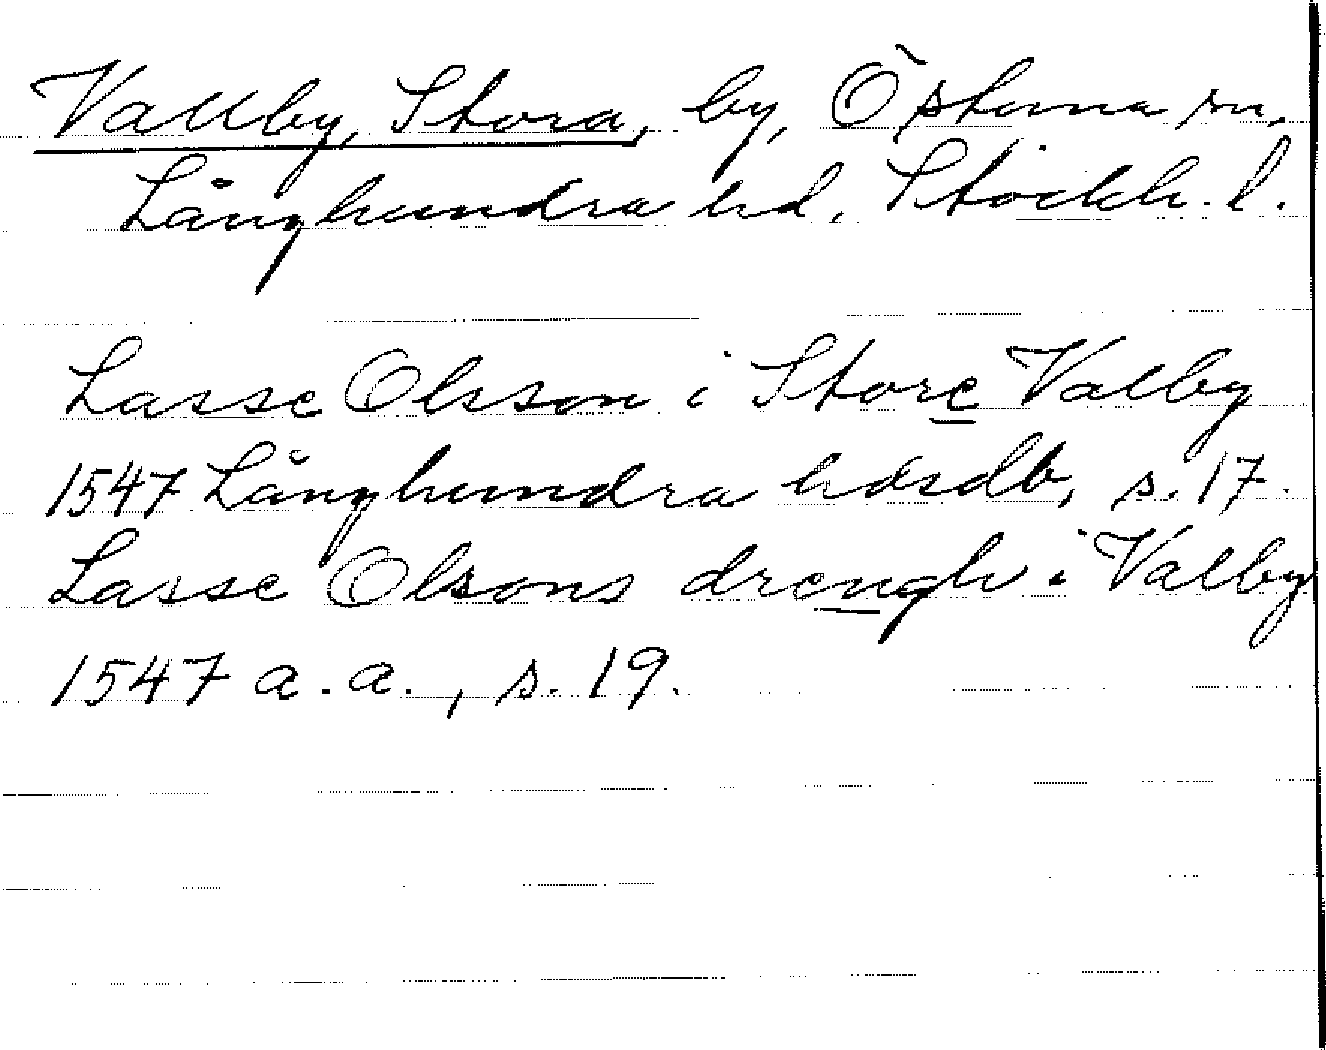 Vallby, Stora, by, Östuna sn,
Långhundra hd. Stockh. l.
Lasse Olsson i Store Valby
1547 Långhundra hdsdb, s. 17.
Lasse Olsons drengh i Valby
1547 a. a., s. 19.